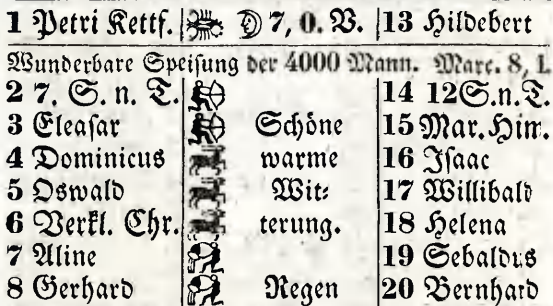 1 Petri Kettf. ☽ 7, 0. V. 13 Hildebert
Wunderbare Speisung der 4000 Mann. Marc. 8, 1.
2 7. S. n. T. 14 12 S. n. T.
3 Eleasar Schöne 15 Mar. Him.
4 Dominicus warme 16 Isaac
5 Oswald Wit- 17 Willibald
6 Verkl. Chr. terung. 18 Helena
7 Aline 19 Sebaldus
8 Gerhard Regen 20 Bernhard